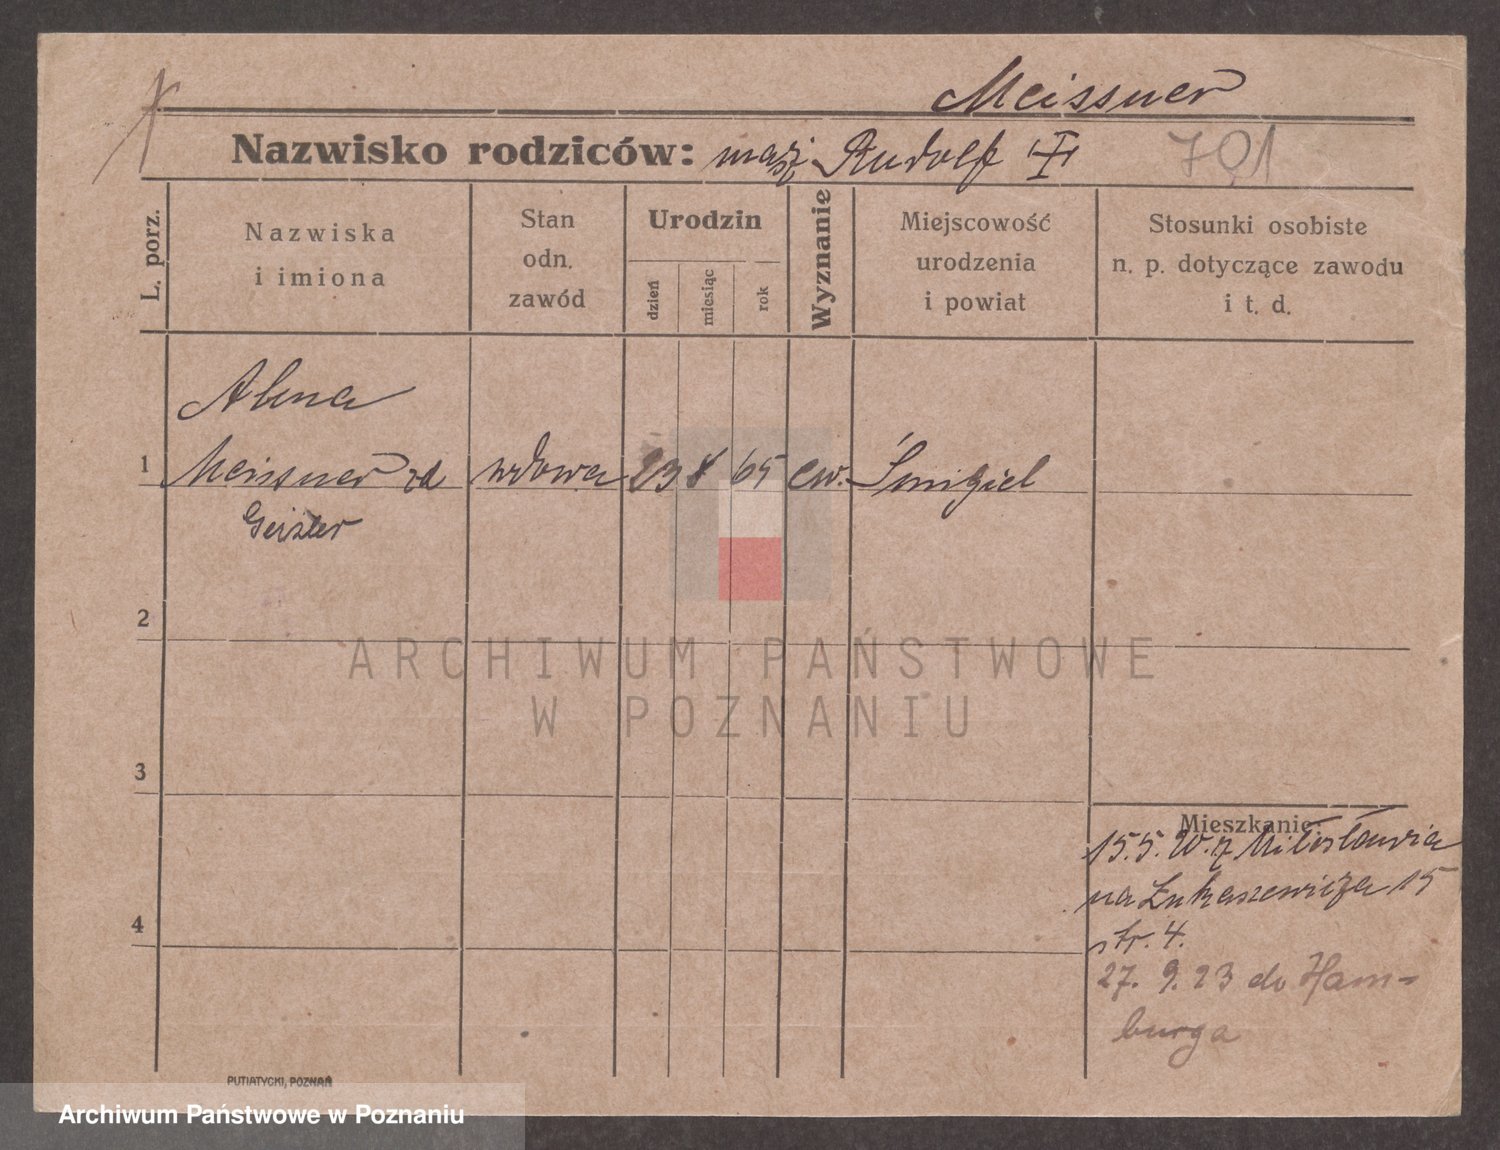 Meissner
Nazwisko rodziców: mąż Rudolf
701
L. porz.
Nazwiska
i imiona
Stan
odn.
zawód
Urodzin
dzień
miesiąc
rok
Wyznanie
Miejscowość
urodzenia
i powiat
Stosunki osobiste
n. p. dotyczące zawodu
i t. d.
Alma
1 Meissner zd wdowa 23 8 65 ew. Śmigiel
Geisler
2
3
4
Mieszkanie:
15.5. 20. z Miłosławia
na Łukaszewicza 15
str. 4.
27. 9. 23 do Ham-
burga
PUTIATYCKI, POZNAŃ
ARCHIWUM PAŃSTWOWE
W POZNANIU
Archiwum Państwowe w Poznaniu